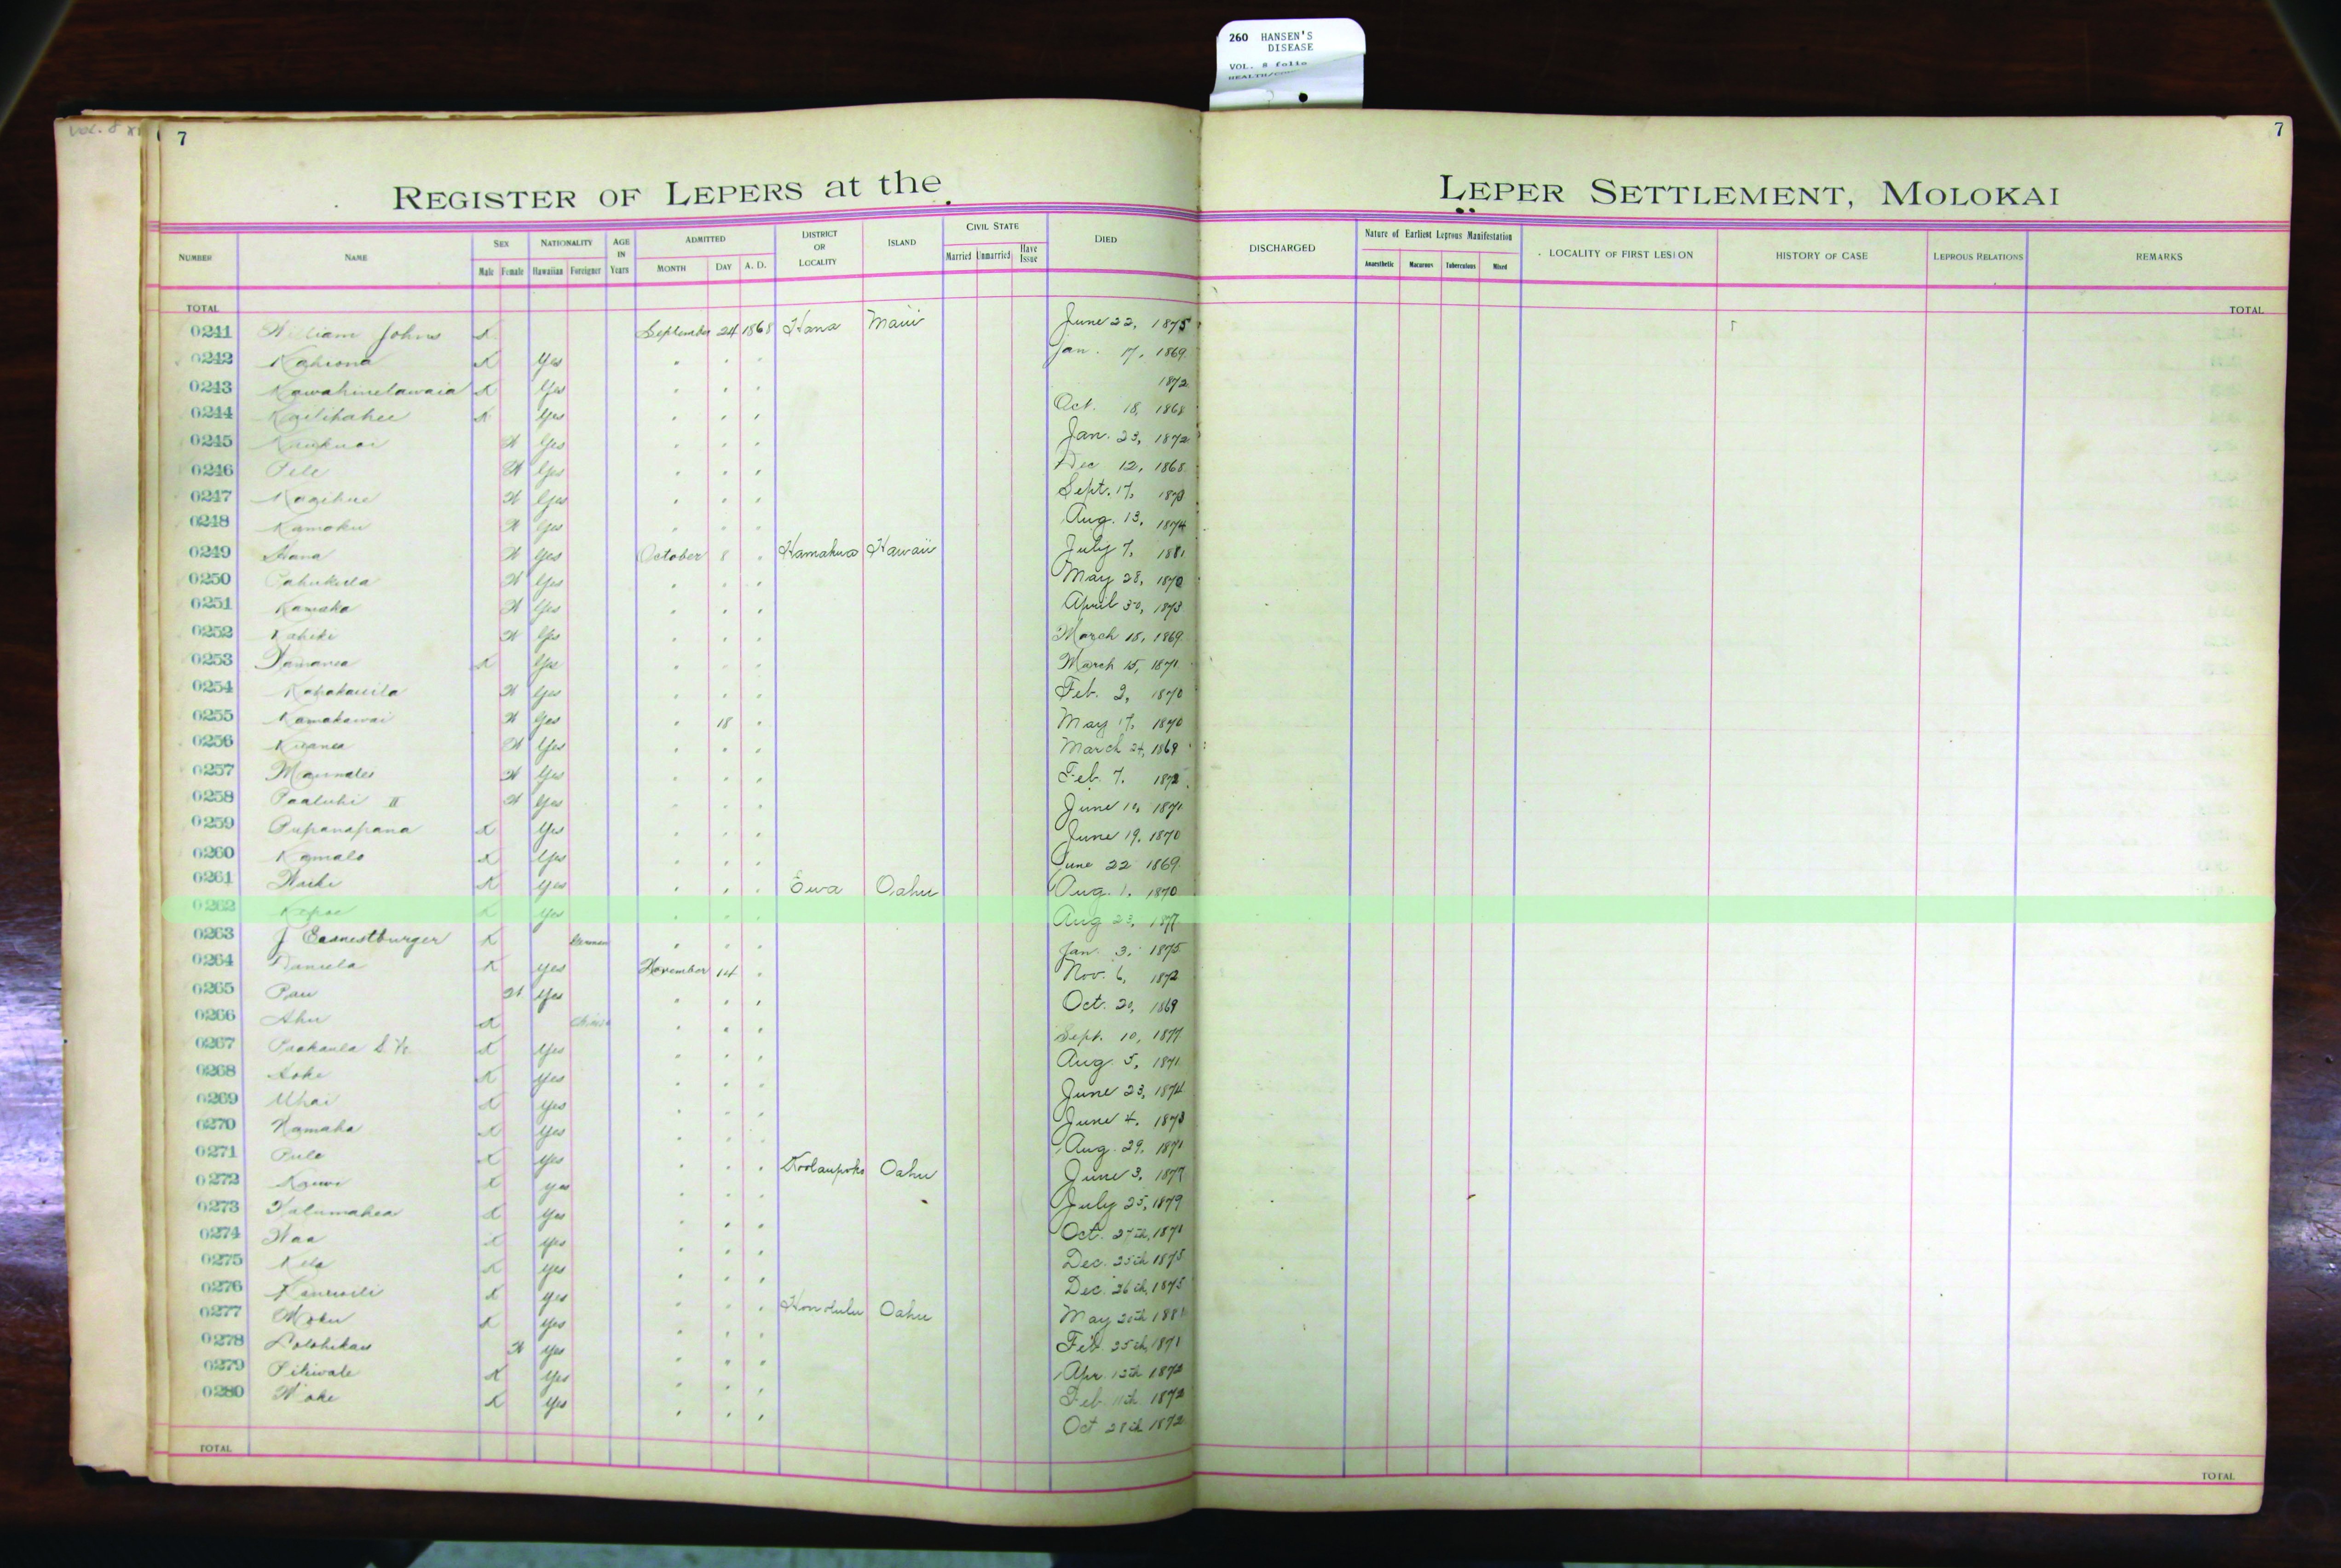 260 HANSEN'S
DISEASE
VOL. 8 folio
VOL. 8
7
7
REGISTER OF LEPERS at the LEPER SETTLEMENT, MOLOKAI
NUMBER NAME SEX NATIONALITY AGE IN Years ADMITTED DISTRICT OR LOCALITY ISLAND CIVIL STATE DIED DISCHARGED Nature of Earliest Leprous Manifestation LOCALITY OF FIRST LESION HISTORY OF CASE LEPROUS RELATIONS REMARKS
Male Female Hawaiian Foreigner MONTH DAY A. D. Married Unmarried Have Issue Anaesthetic Macarous Tuberculous Mixed
TOTAL TOTAL
0241 William Johns X September 24 1868 Hana Maui June 22, 1875
0242 Kahiona X Yes " " " Jan. 17, 1869
0243 Kawahinelawaia X Yes " " " 1872
0244 X Yes " " " Oct. 18, 1868
0245 X Yes " " " Jan. 23, 1872
0246 Pele X Yes " " " Dec 12, 1868
0247 X Yes " " " Sept. 17,
0248 Kamoku X Yes " " " Aug. 13, 1874
0249 Hana X Yes October 8 " Hamakua Hawaii July 7, 1881
0250 X Yes " " " May 28, 1870
0251 Kamaka X Yes " " " April 30, 1873
0252 Kahiki X Yes " " " March 18, 1869
0253 X Yes " " " March 15, 1871
0254 Kapakauila X Yes " " " Feb. 2, 1870
0255 Kamakawai X Yes " 18 " May 17, 1870
0256 X Yes " " " March 24, 1869
0257 X Yes " " " Feb. 7, 1872
0258 Paaluhi II X Yes " " " June 10, 1871
0259 Pupanapana X Yes " " " June 19, 1870
0260 Kamalo X Yes " " " June 22 1869
0261 X Yes " " " Ewa Oahu Aug. 1, 1870
0262 Kepoe X Yes " " " Aug 23, 1877
0263 J Earnestburger X German " " " Jan. 3, 1875
0264 Daniela X Yes November 14 " Nov. 6, 1872
0265 Pau X Yes " " " Oct. 20, 1869
0266 Ahu X Chinese " " " Sept. 10, 1877
0267 X Yes " " " Aug. 5, 1871
0268 X Yes " " " June 23, 1874
0269 Uhai X Yes " " " June 4, 1873
0270 X Yes " " " Aug. 29, 1871
0271 Pule X Yes " " " Koolaupoko Oahu June 3, 1877
0272 X Yes " " " July 25, 1879
0273 X Yes " " " Oct. 27th, 1871
0274 X Yes " " " Dec. 25th 1875
0275 X Yes " " " Dec. 26th, 1875
0276 X Yes " " " Honolulu Oahu May 20th
0277 Moku X Yes " " " Feb. 25th, 1871
0278 X Yes " " " Apr. 13th 1872
0279 Piliwale X Yes " " " Feb. 11th 1872
0280 X Yes " " " Oct 28th 1872
TOTAL TOTAL